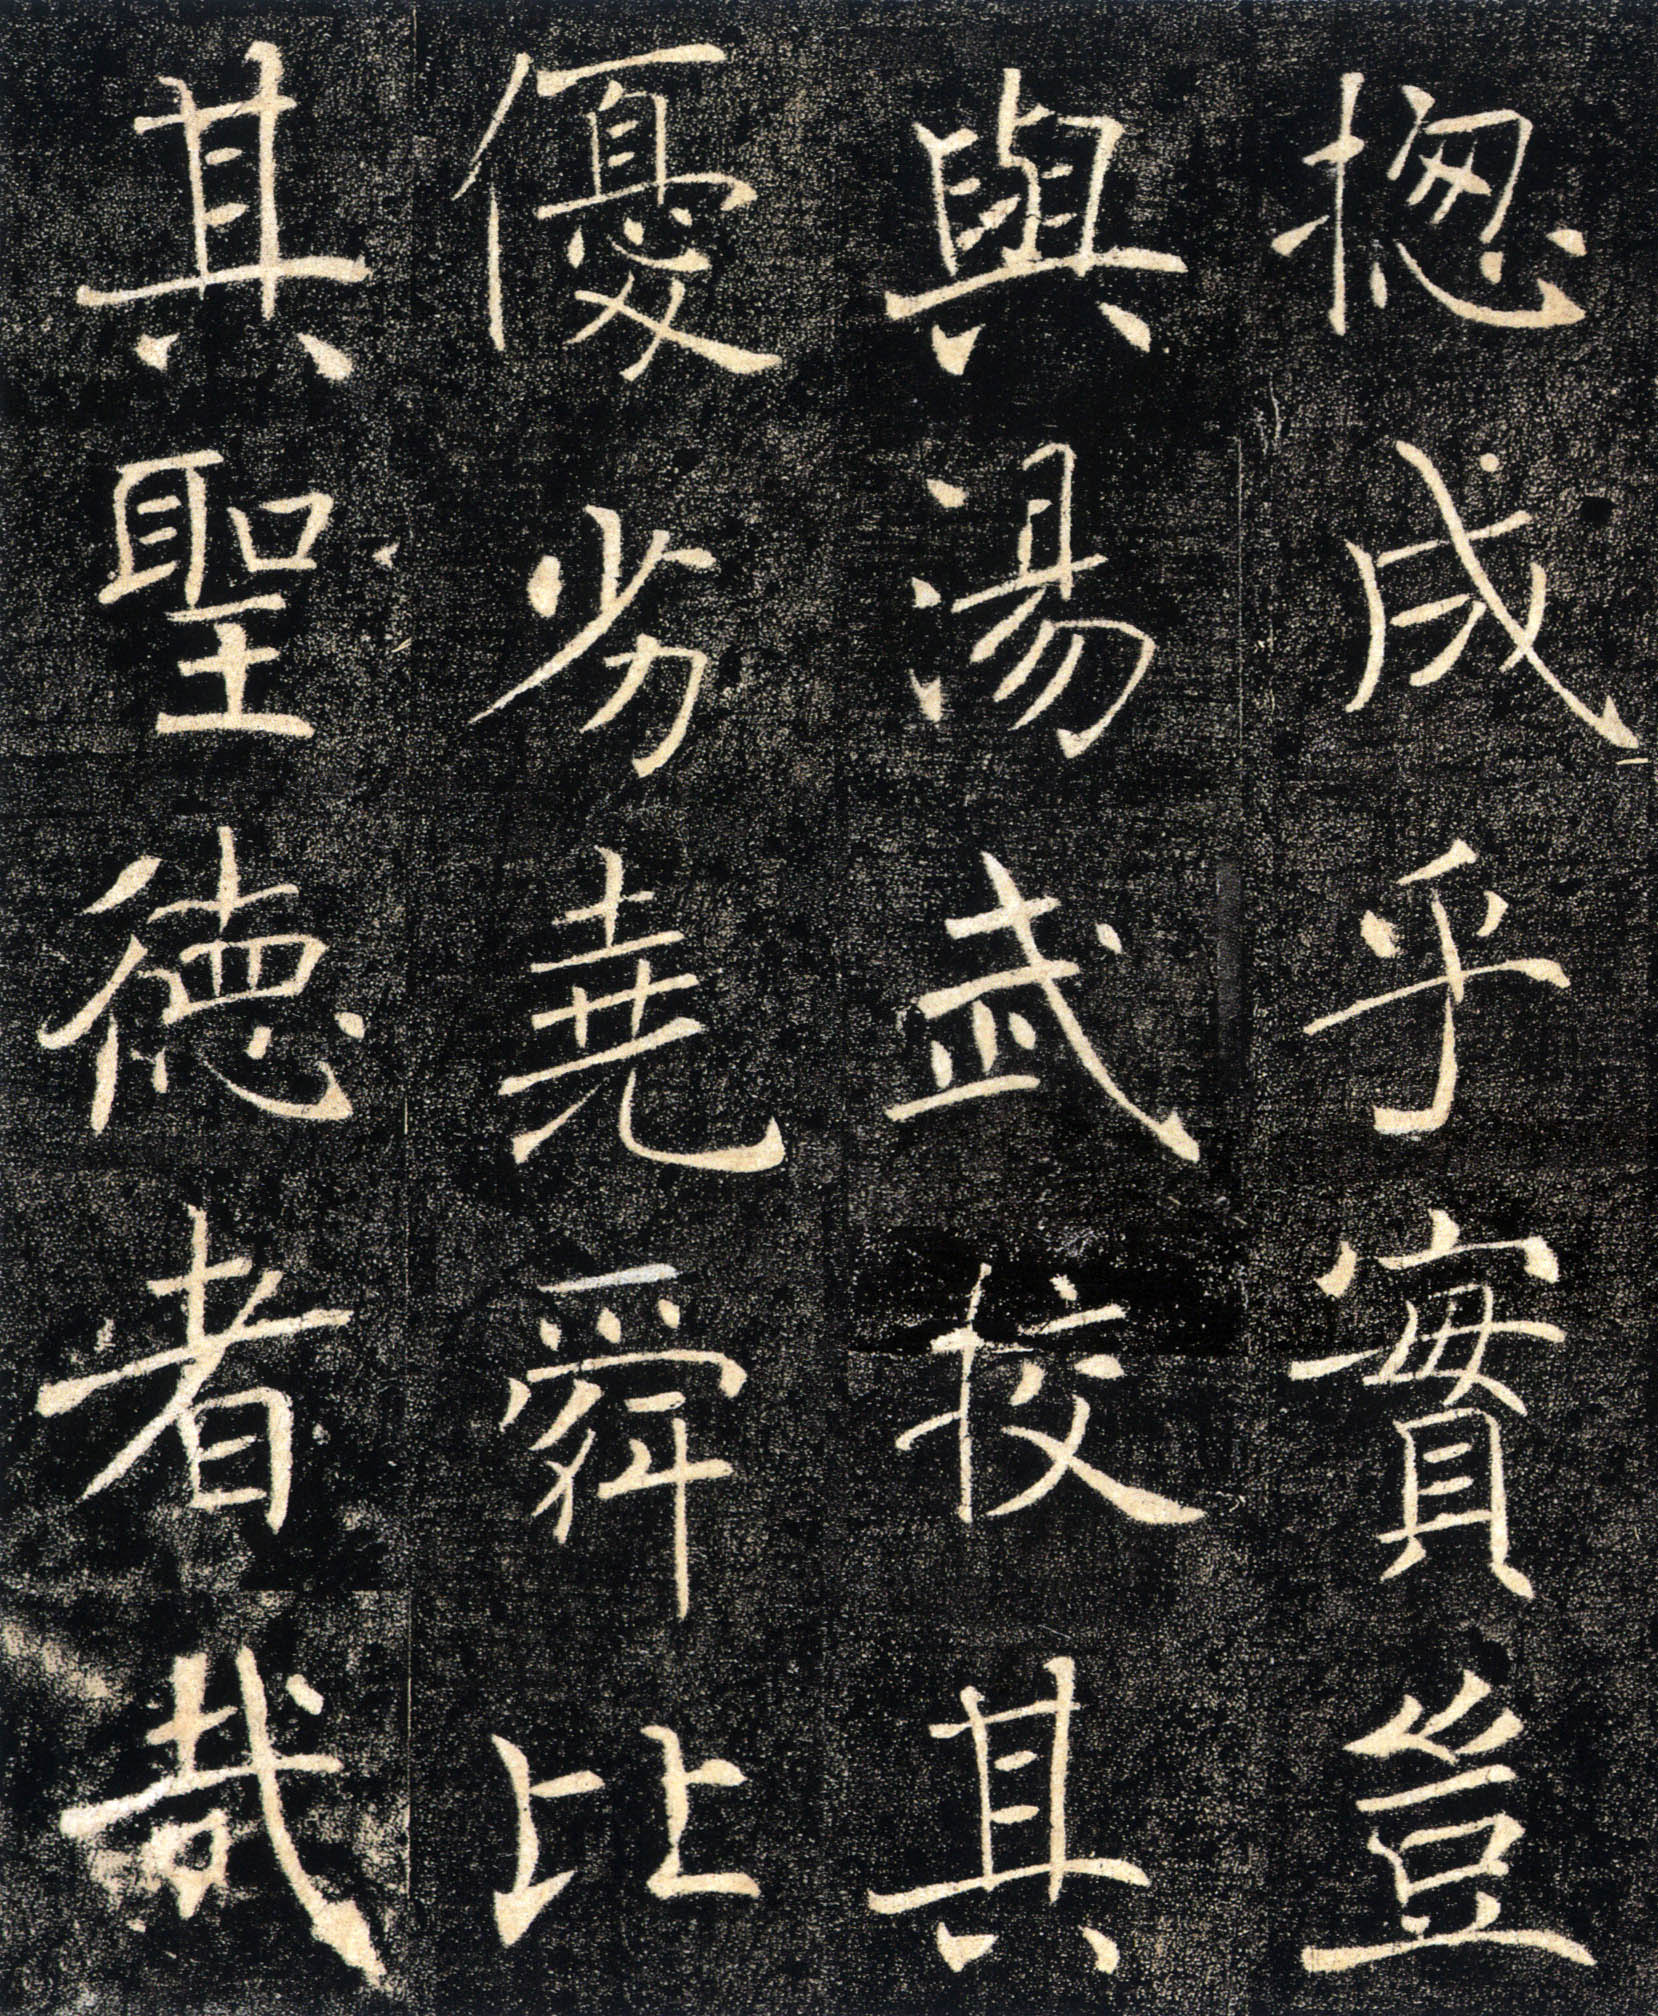 揔成乎實豈
與湯武校其
優劣堯舜比
其聖德者哉